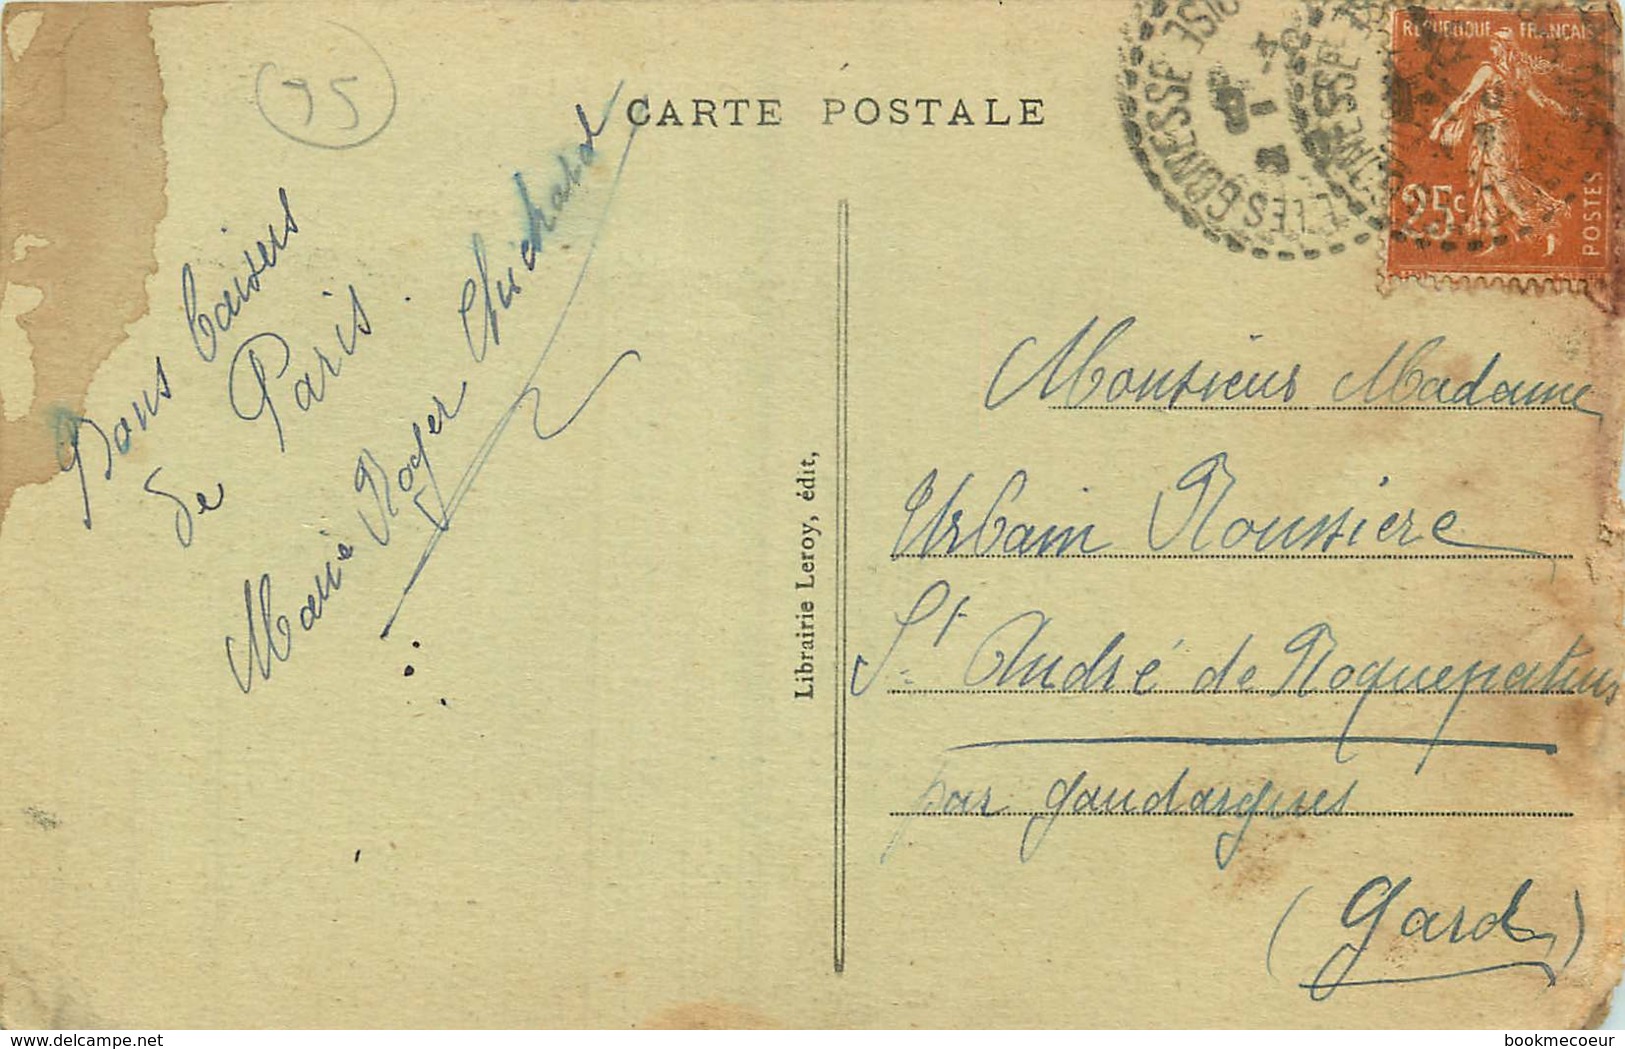 95
CARTE POSTALE
RÉPUBLIQUE FRANÇAISE
25c
POSTES
LES GONESSE
Bons baisers
de Paris.
Marie Roger Chichard
Librairie Leroy, édit,
Monsieur Madame
Urbain Roussiere
St André de Roquepertuis
par Goudargues
(Gard)
www.delcampe.net
bookmecoeur